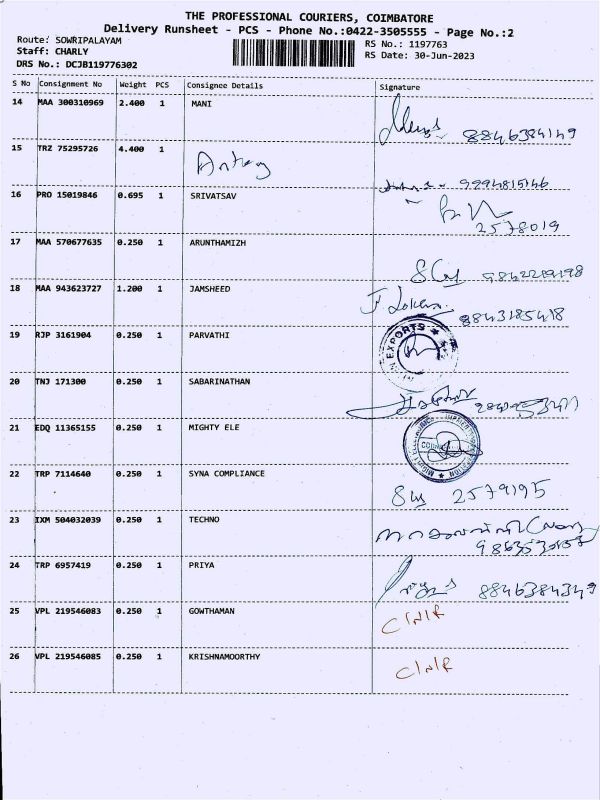 THE PROFESSIONAL COURIERS, COIMBATORE
Delivery Runsheet - PCS - Phone No.:0422-3505555 - Page No.:2
Route: SOWRIPALAYAM RS No.: 1197763
Staff: CHARLY RS Date: 30-Jun-2023
DRS No.: DCJB119776302
S No Consignment No Weight PCS Consignee Details Signature
14 MAA 300310969 2.400 1 MANI
15 TRZ 75295726 4.400 1 Antony
16 PRO 15019846 0.695 1 SRIVATSAV
2578019
17 MAA 570677635 0.250 1 ARUNTHAMIZH
18 MAA 943623727 1.200 1 JAMSHEED
8843185418
19 RJP 3161904 0.250 1 PARVATHI
EXPORTS
20 TNJ 171300 0.250 1 SABARINATHAN
21 EDQ 11365155 0.250 1 MIGHTY ELE
22 TRP 7114640 0.250 1 SYNA COMPLIANCE
2579195
23 IXM 504032039 0.250 1 TECHNO
24 TRP 6957419 0.250 1 PRIYA
8846384349
25 VPL 219546083 0.250 1 GOWTHAMAN
C/N/R
26 VPL 219546085 0.250 1 KRISHNAMOORTHY
C/N/R